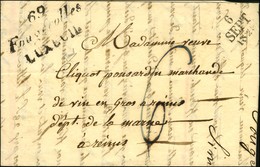 69
Fougerolles
LUXEUIL
6
SEPT
182
Madame veuve
Cliquot ponsardin marchande
de vin en Gros a reims
dépt. de la marne
a reims
6